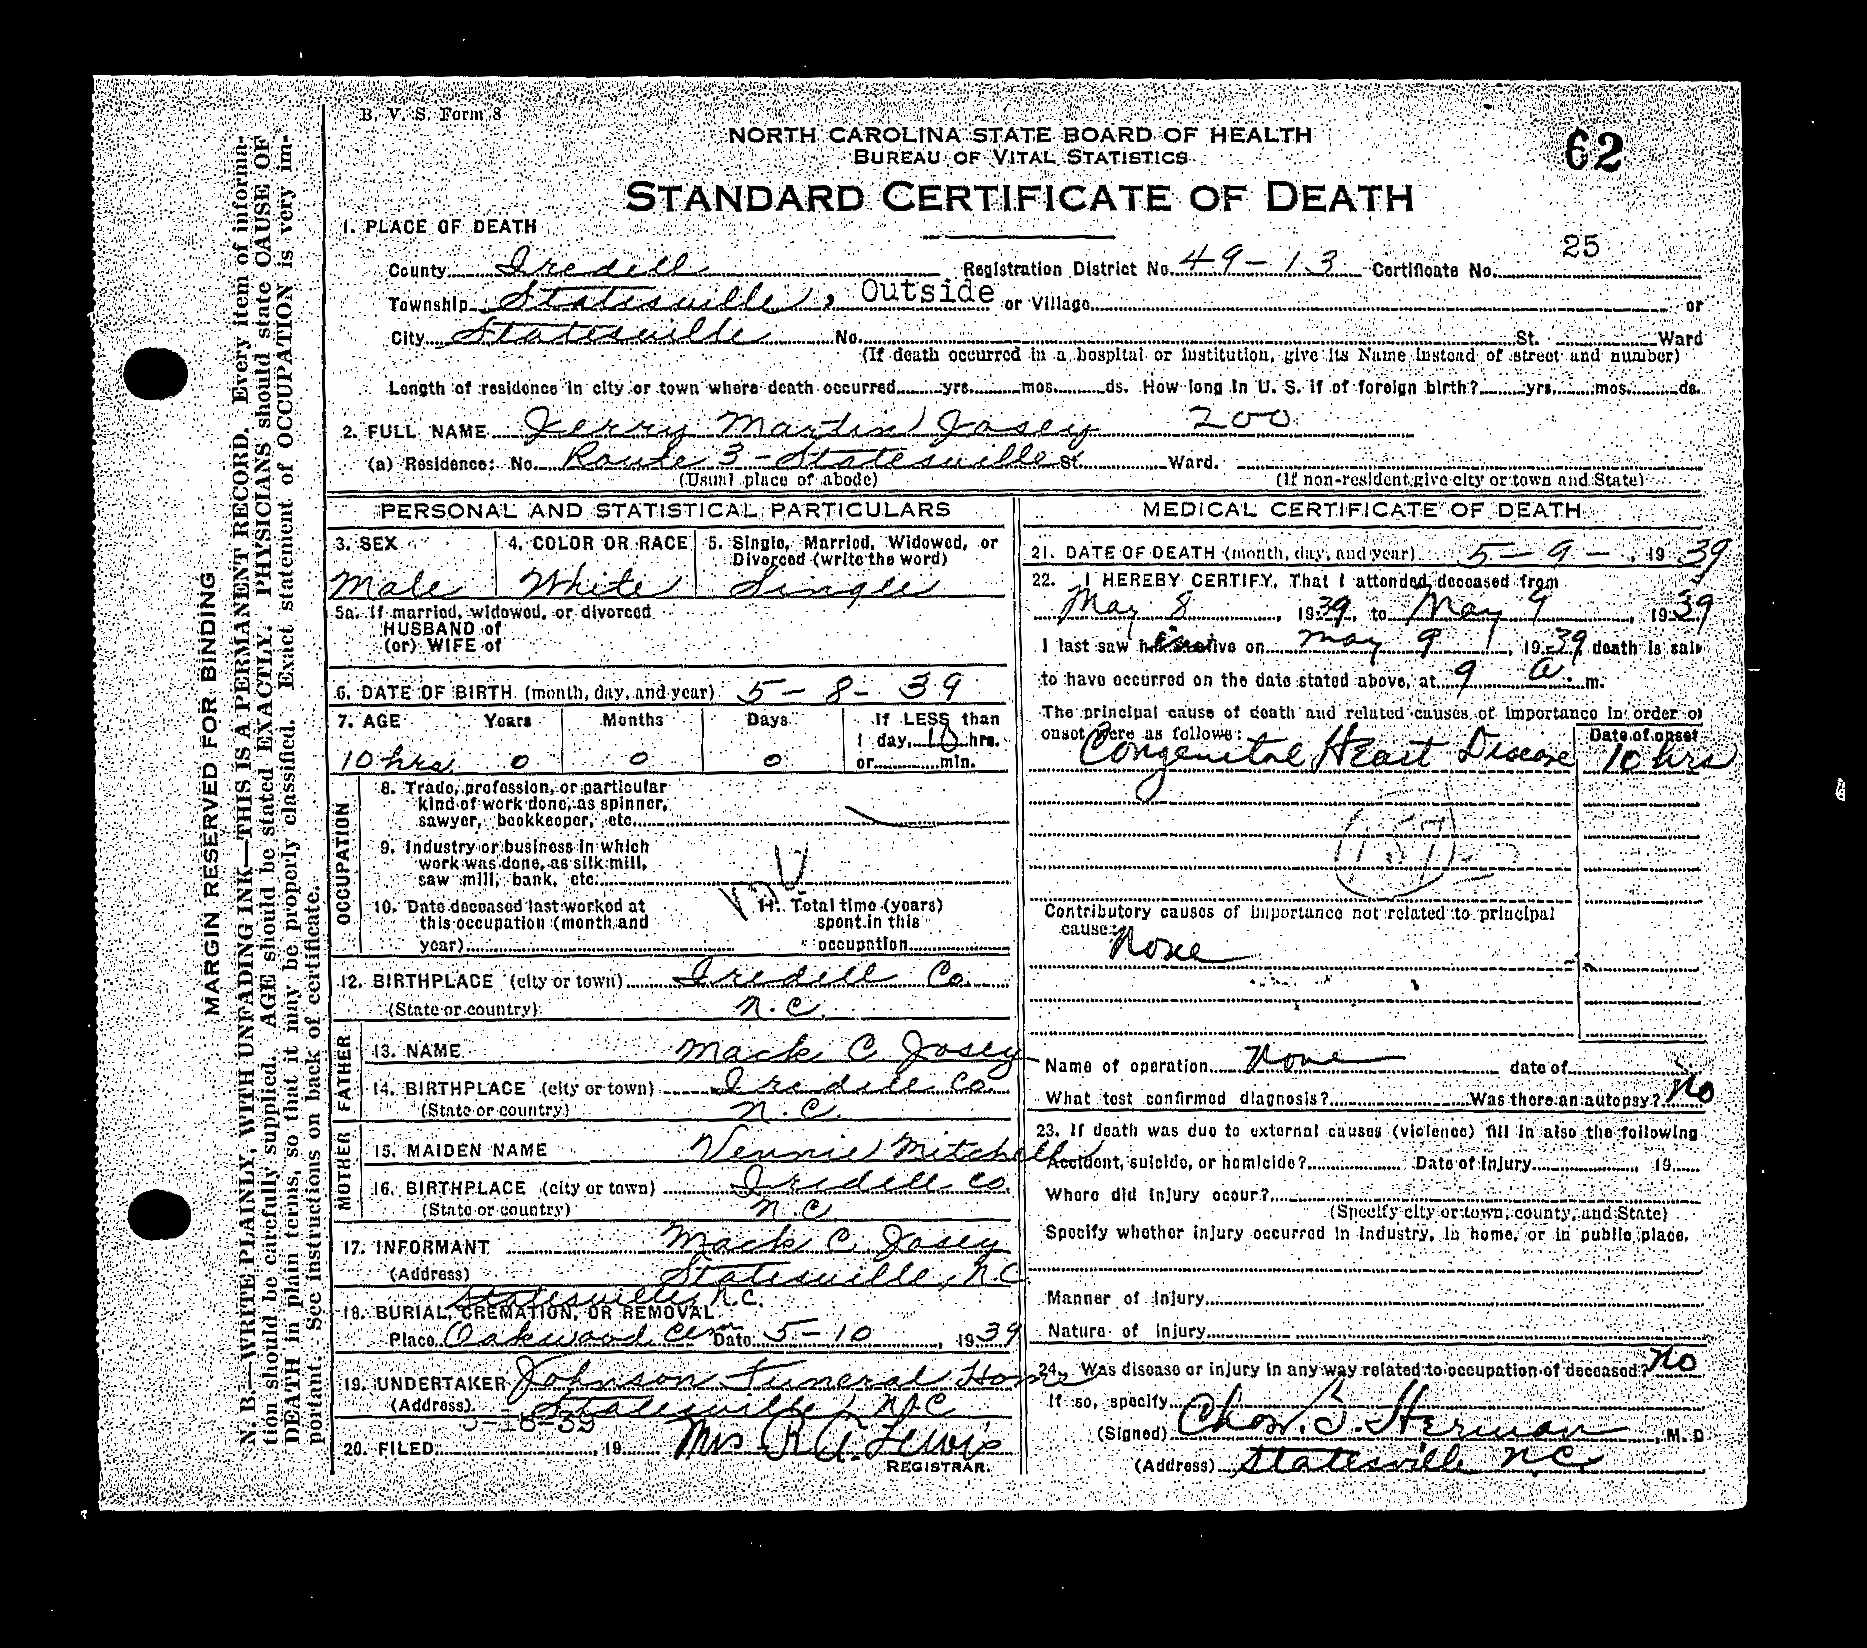 B. V. S. Form 8
NORTH CAROLINA STATE BOARD OF HEALTH
BUREAU OF VITAL STATISTICS
62
STANDARD CERTIFICATE OF DEATH
1. PLACE OF DEATH
25
County Iredell Registration District No. 49-13 Certificate No.
Township Statesville, Outside or Village or
City Statesville No. St. Ward
(If death occurred in a hospital or institution, give its Name instead of street and number)
Length of residence in city or town where death occurred yrs. mos. ds. How long in U. S. if of foreign birth? yrs. mos. ds.
2. FULL NAME Jerry Martin Josey 200
(a) Residence: No. Route 3 - Statesville St. Ward.
(Usual place of abode) (If non-resident give city or town and State)
PERSONAL AND STATISTICAL PARTICULARS
3. SEX 4. COLOR OR RACE 5. Single, Married, Widowed, or
Divorced (write the word)
Male White Single
5a. If married, widowed, or divorced
HUSBAND of
(or) WIFE of
6. DATE OF BIRTH (month, day, and year) 5-8-39
7. AGE Years Months Days If LESS than
1 day, 10 hrs.
10 hrs. 0 0 0 or min.
OCCUPATION
8. Trade, profession, or particular
kind of work done, as spinner,
sawyer, bookkeeper, etc.
9. Industry or business in which
work was done, as silk mill,
saw mill, bank, etc.
10. Date deceased last worked at 11. Total time (years)
this occupation (month and spent in this
year) occupation
12. BIRTHPLACE (city or town) Iredell Co.
(State or country) N.C.
FATHER
13. NAME Mack C Josey
14. BIRTHPLACE (city or town) Iredell Co.
(State or country) N.C.
MOTHER
15. MAIDEN NAME Vennie Mitchell
16. BIRTHPLACE (city or town) Iredell Co.
(State or country) N.C.
17. INFORMANT Mack C Josey
(Address) Statesville, N.C.
Statesville, N.C.
18. BURIAL, CREMATION, OR REMOVAL
Place Oakwood Cem Date 5-10, 1939
19. UNDERTAKER Johnson Funeral Home
(Address) Statesville, N.C.
5-18-39
20. FILED , 19 Mrs R A. Lewis
REGISTRAR.
MEDICAL CERTIFICATE OF DEATH
21. DATE OF DEATH (month, day, and year) 5-9-, 1939
22. I HEREBY CERTIFY, That I attended deceased from
May 8, 1939, to May 9, 1939
I last saw him alive on May 9, 1939 death is said
to have occurred on the date stated above, at 9 a. m.
The principal cause of death and related causes of importance in order of
onset were as follows: Date of onset
Congenital Heart Disease 10 hrs
157
Contributory causes of importance not related to principal
cause:
None
Name of operation None date of
What test confirmed diagnosis? Was there an autopsy? No
23. If death was due to external causes (violence) fill in also the following
Accident, suicide, or homicide? Date of injury , 19
Where did injury occur?
(Specify city or town, county, and State)
Specify whether injury occurred in industry, in home, or in public place.
Manner of injury
Nature of injury
24. Was disease or injury in any way related to occupation of deceased? No
If so, specify
(Signed) Chas. B. Herman, M. D
(Address) Statesville N.C.
MARGIN RESERVED FOR BINDING
N. B.—WRITE PLAINLY, WITH UNFADING INK—THIS IS A PERMANENT RECORD. Every item of informa-
tion should be carefully supplied. AGE should be stated EXACTLY. PHYSICIANS should state CAUSE OF
DEATH in plain terms, so that it may be properly classified. Exact statement of OCCUPATION is very im-
portant. See instructions on back of certificate.